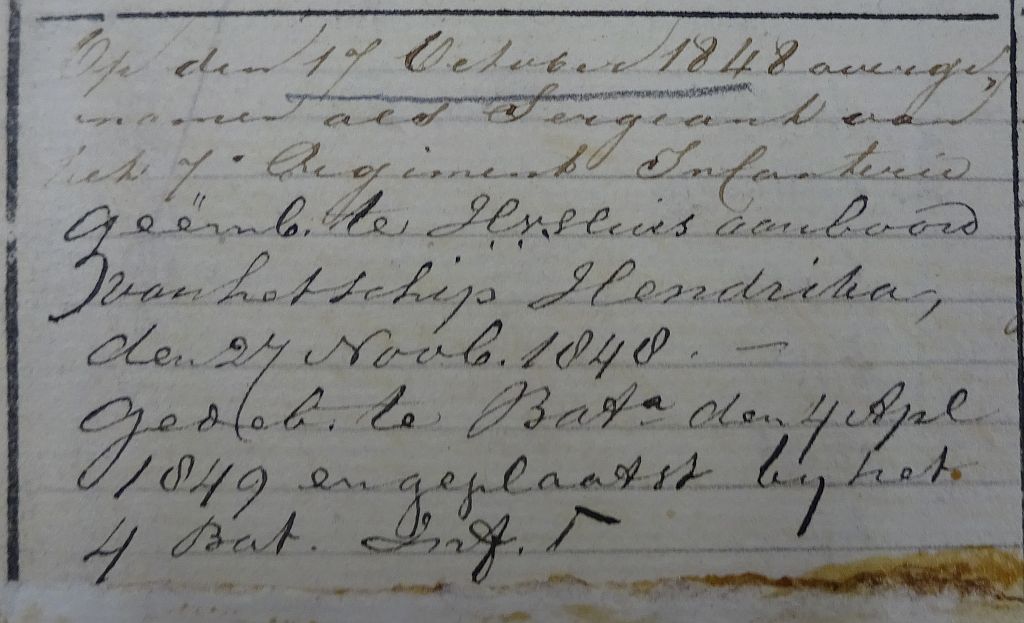 Op den 17 October 1848 overge-
nomen als Sergeant van
het 7e Regiment Infanterie
geëmb. te H.v.Sluis aanboord
van het schip Hendrika,
den 27 Novb. 1848. —
Gedeb. te Bata den 4 Apl
1849 en geplaatst by het
4 Bat. Inf.